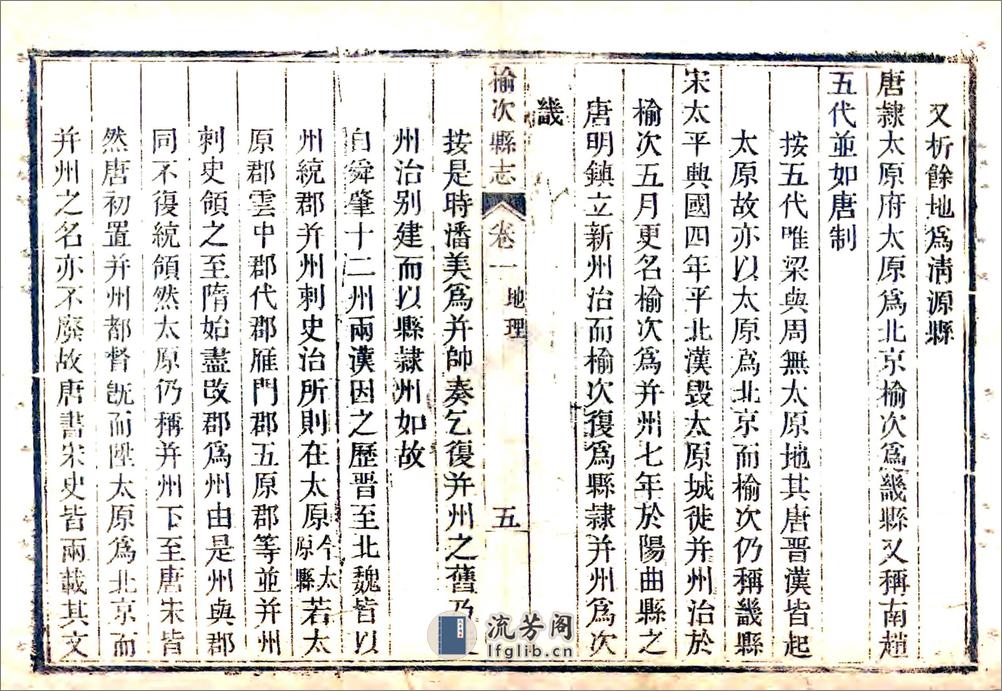 又析餘地爲淸源縣
唐隷太原府太原爲北京榆次爲畿縣又稱南趙
五代並如唐制
按五代唯梁與周無太原地其唐晉漢皆起
太原故亦以太原爲北京而榆次仍稱畿縣
宋太平興國四年平北漢毀太原城徙并州治於
榆次五月更名榆次爲并州七年於陽曲縣之
唐明鎮立新州治而榆次復爲縣隷并州爲次
畿
榆次縣志 卷一 地理 五
按是時潘美爲并帥奏乞復并州之舊乃
州治别建而以縣隷州如故
自舜肇十二州兩漢因之歷晉至北魏皆以
州統郡并州刺史治所則在太原今太原縣若太
原郡雲中郡代郡雁門郡五原郡等並并州
刺史領之至隋始盡改郡爲州由是州與郡
同不復統領然太原仍稱并州下至唐宋皆
然唐初置并州都督旣而陞太原爲北京而
并州之名亦不廢故唐書宋史皆兩載其文
流芳阁
lfglib.cn